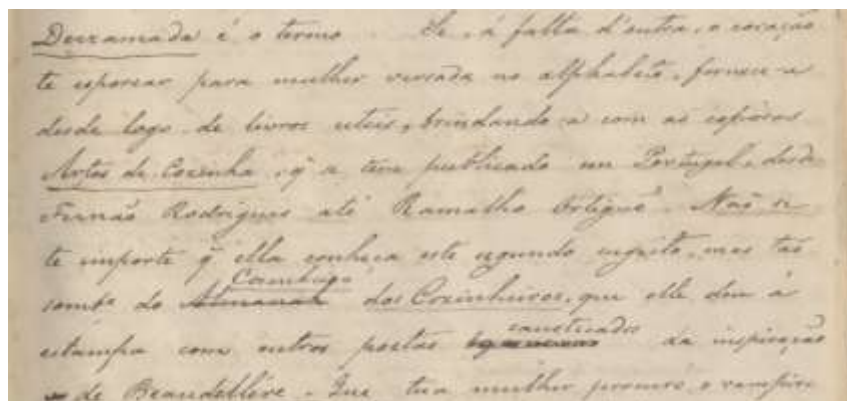 Derramada é o termo. Se, á falta d'outra, o coração
te esporear para mulher versada no alphabeto, fornece-a
desde logo de livros uteis, brindando-a com as copiosas
Artes de Cozinha, q̃ se tem publicado em Portugal, desde
Fernão Rodrigues até Ramalho Ortigão. Não se
te importe q̃ ella conheça este segundo sugeito, mas tão
somte do Almanak Cosinheiro dos Cozinheiros, que elle deu á
estampa com outros poetas causticados da inspiração
de Beaudellere. Que tua mulher ignore o vampiro